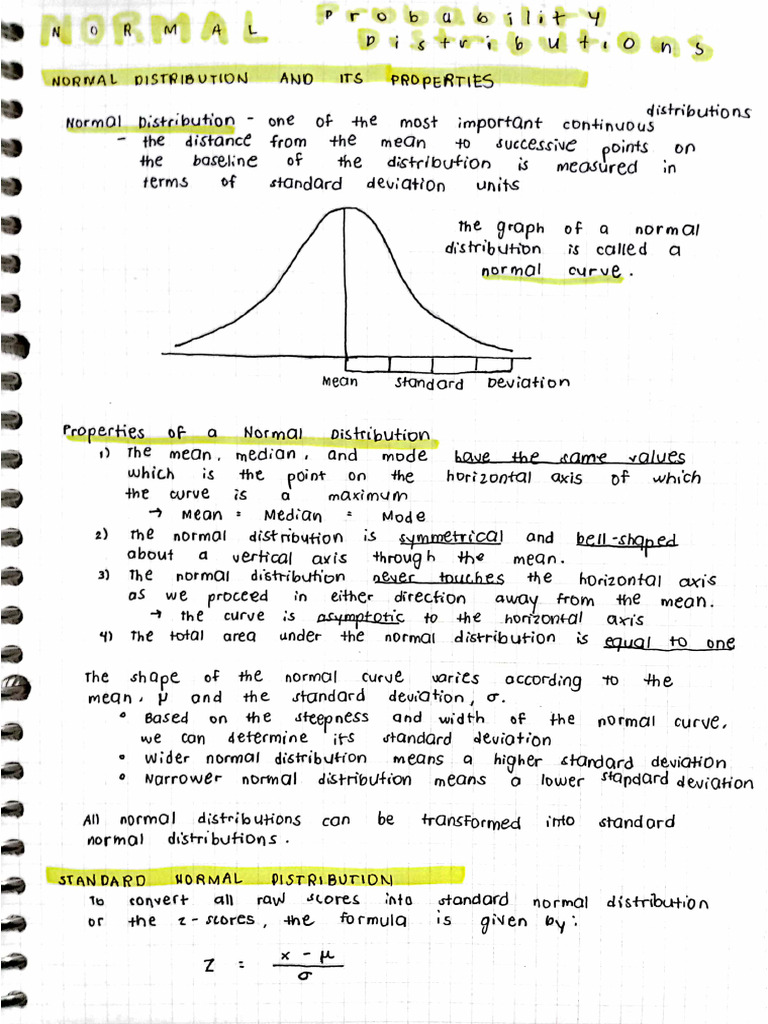 NORMAL Probability
Distributions
NORMAL DISTRIBUTION AND ITS PROPERTIES
Normal Distribution - one of the most important continuous distributions
- the distance from the mean to successive points on
the baseline of the distribution is measured in
terms of standard deviation units
the graph of a normal
distribution is called a
normal curve.
Mean Standard Deviation
Properties of a Normal Distribution
1) The mean, median, and mode have the same values
which is the point on the horizontal axis of which
the curve is a maximum
→ Mean = Median = Mode
2) The normal distribution is symmetrical and bell-shaped
about a vertical axis through the mean.
3) The normal distribution never touches the horizontal axis
as we proceed in either direction away from the mean.
→ the curve is asymptotic to the horizontal axis
4) The total area under the normal distribution is equal to one
The shape of the normal curve varies according to the
mean, μ and the standard deviation, σ.
• Based on the steepness and width of the normal curve,
we can determine its standard deviation
• Wider normal distribution means a higher standard deviation
• Narrower normal distribution means a lower standard deviation
All normal distributions can be transformed into standard
normal distributions.
STANDARD NORMAL DISTRIBUTION
To convert all raw scores into standard normal distribution
or the z-scores, the formula is given by:
Z = x - μ
σ